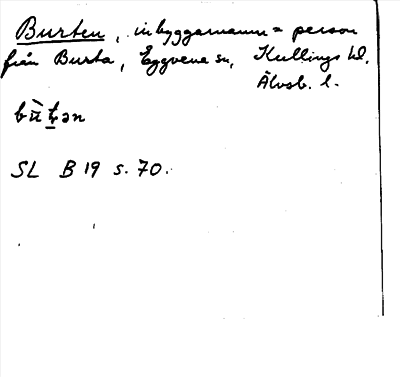 Burten, inbyggarnamn = person
från Burta, Eggvena sn, Kullings hd.
Älvsb. l.
bu̇̀ṯən
SL B 19 s. 70.